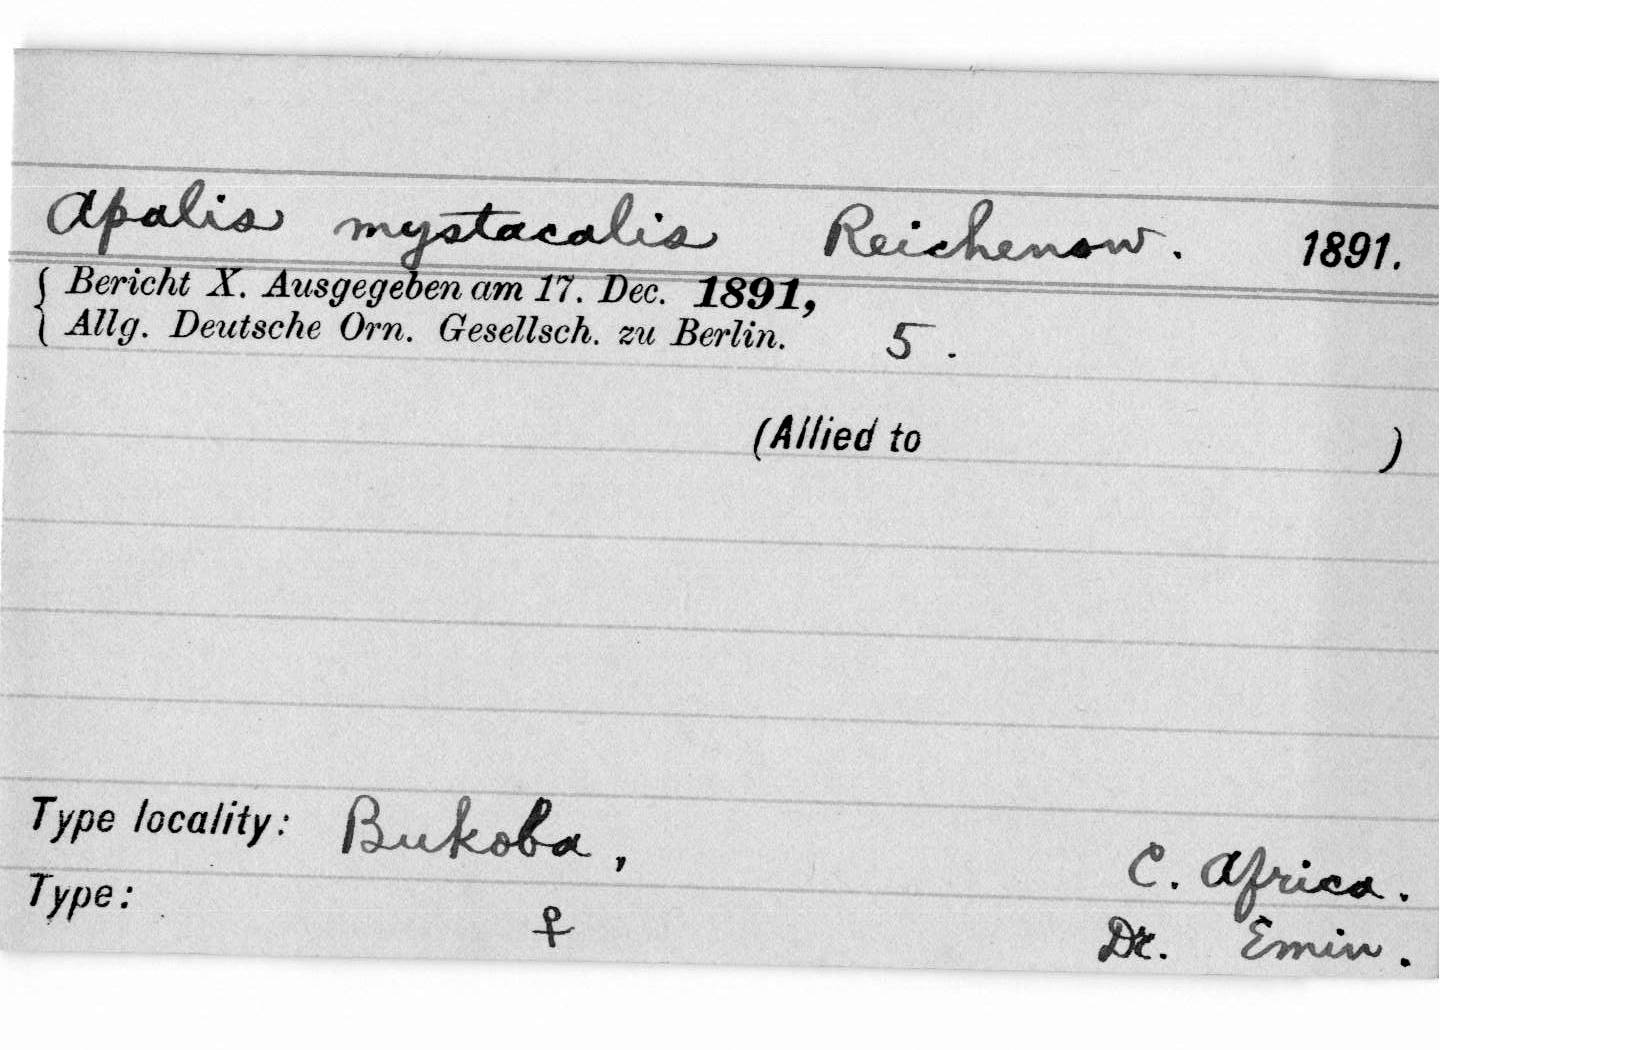 Apalis mystacalis Reichenow. 1891.
Bericht X. Ausgegeben am 17. Dec. 1891,
Allg. Deutsche Orn. Gesellsch. zu Berlin. 5.
(Allied to )
Type locality: Bukoba, C. Africa.
Type: ♀ Dr. Emin.